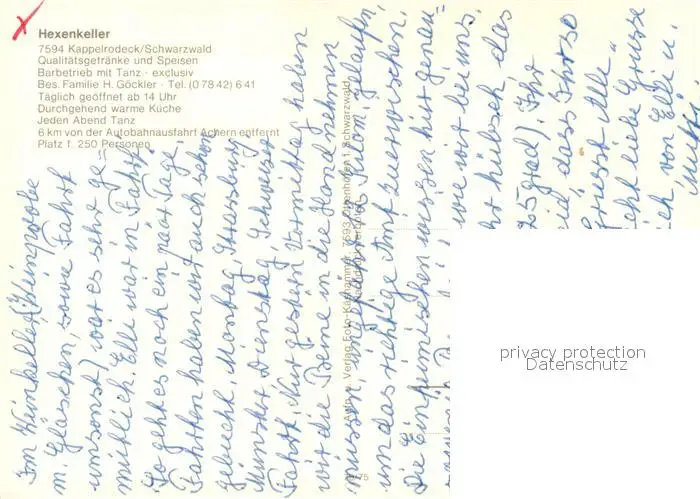 Hexenkeller
7594 Kappelrodeck/Schwarzwald
Qualitätsgetränke und Speisen
Barbetrieb mit Tanz · exclusiv
Bes. Familie H. Göckler · Tel. (0 78 42) 6 41
Täglich geöffnet ab 14 Uhr
Durchgehend warme Küche
Jeden Abend Tanz
6 km von der Autobahnausfahrt Achern entfernt
Platz f. 250 Personen
Im Weinkeller (Weinprobe
m. Gläschen, sowie Fahrt
umsonst) war es sehr ge=
mütlich. Elli war in Fahrt
So geht es noch ein paar Tage.
Fahrten haben wir auch schon
gebucht, Montag, Strassburg
Münster, Dienstag, Schweizer
Fahrt. Nur gestern Vormittag haben
wir die Beine in die Hand nehmen
müssen, ungefähr Kilom. gelaufen,
um das richtige Amt zu erwischen.
Die Einheimischen wissen hier genau=
wie wir bei uns.
hübsch das
Ihr
dass Ihr so
Grüsse alle
liebe Grüsse
von Elli u.
Aufn. u. Verlag Foto-Kashammer, 7593 Ottenhöfen i. Schwarzwald
privacy protection
Datenschutz